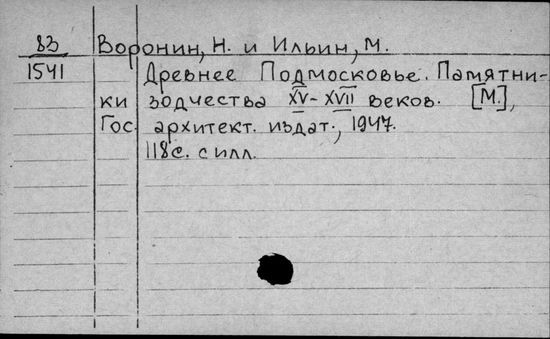 83 Воронин, Н. и Ильин, М.
1541 Древнее Подмосковье. Памятни-
ки зодчества XV-XVII веков. [М.],
Гос. архитект. издат., 1947.
118с. с илл.